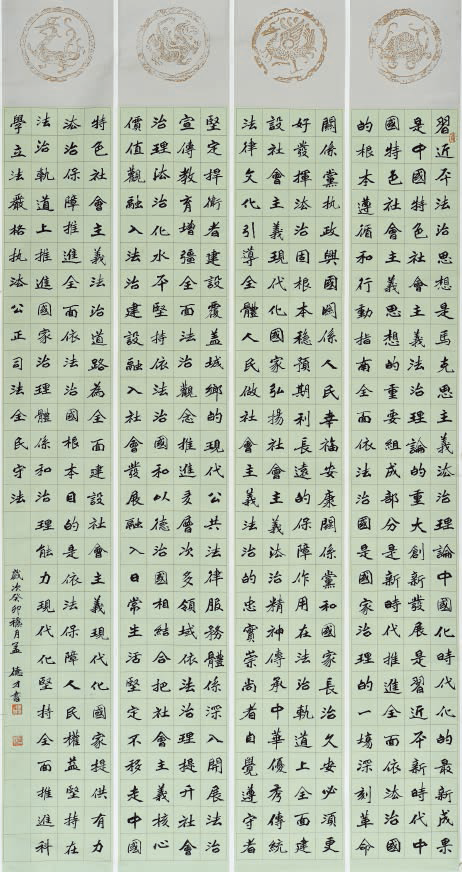 習近平法治思想是馬克思主義法治理論中國化時代化的最新成果
是中國特色社會主義法治理論的重大創新發展是習近平新時代中
國特色社會主義思想的重要組成部分是新時代推進全面依法治國
的根本遵循和行動指南全面依法治國是國家治理的一場深刻革命
關係黨執政興國關係人民幸福安康關係黨和國家長治久安必須更
好發揮法治固根本穩預期利長遠的保障作用在法治軌道上全面建
設社會主義現代化國家弘揚社會主義法治精神傳承中華優秀傳統
法律文化引導全體人民做社會主義法治的忠實崇尚者自覺遵守者
堅定捍衛者建設覆蓋城鄉的現代公共法律服務體係深入開展法治
宣傳教育增強全民法治觀念推進多層次多領域依法治理提升社會
治理法治化水平堅持依法治國和以德治國相結合把社會主義核心
價值觀融入法治建設融入社會發展融入日常生活堅定不移走中國
特色社會主義法治道路為全面建設社會主義現代化國家提供有力
法治保障推進全面依法治國根本目的是依法保障人民權益堅持在
法治軌道上推進國家治理體係和治理能力現代化堅持全面推進科
學立法嚴格執法公正司法全民守法
歲次癸卯穐月孟德才書